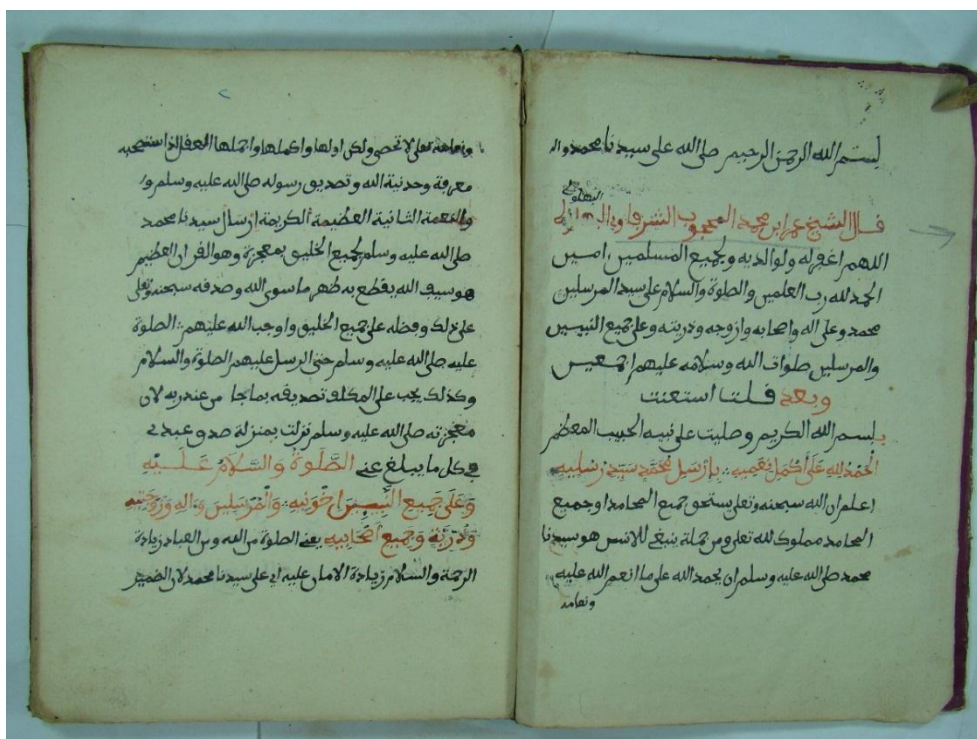 بستم الله الرحمن الرحيم صلى الله على سيدنا محمد واله
البهلولي
قال الشيخ عمر ابن محمد المحجوب الشريف
اللهم اغفر له ولوالديه ولجميع المسلمين امين
الحمد لله رب العلمين والصلوة والسلام على سيد المرسلين
محمد وعلى اله واصحابه وازوجه وذريته وعلى جميع النبيين
والمرسلين صلوات الله وسلامه عليهم اجمعين
وبعد قلت استعنت
بلسم الله الكريم وصليت على نبيه الحبيب المعظم
الحمد لله على أكمل نعميه بإرسل محمد سيد رسليه
اعلم ان الله سبحنه وتعلى يستحق جميع المحامد او جميع
المحامد مملوك لله تعلى ومن جملة ينبغي للانس هو سيدنا
محمد صلى الله عليه وسلم ان يحمد الله على ما انعم الله عليه
ونعامه
ونعامه تعلى لا تحصى ولكن اولها واكملها واجملها العقل الذا استعين به
معرفة وحدنية الله وتصديق رسوله صلى الله عليه وسلم
والنعمة الثانية العظيمة الكريمة إرسال سيدنا محمد
صلى الله عليه وسلم لجميع الخليق بمعجزة وهو القرءان العظيم
هو سيف الله يقطع به ظهر ما سوى الله وصدقه سبحنه وتعلى
على ذلك وفضله على جميع الخليق واوجب الله عليهم الصلوة
عليه صلى الله عليه وسلم حتى الرسل عليهم الصلوة والسلام
وكذلك يجب على المكلف تصديقه بما جا من عند ربه لان
معجزته صلى الله عليه وسلم نزلت بمنزلة صدق عبدي
في كل ما يبلغ عني الصلوة والسلام عليه
وعلى جميع النبيين اخونيه والمرسلين واله وزوجتيه
وذرية وجميع اصحابيه يعني الصلوة من الله ومن العباد زيادة
الرحمة والسلام زيادة الامان عليه اي على سيدنا محمد لان الضمير